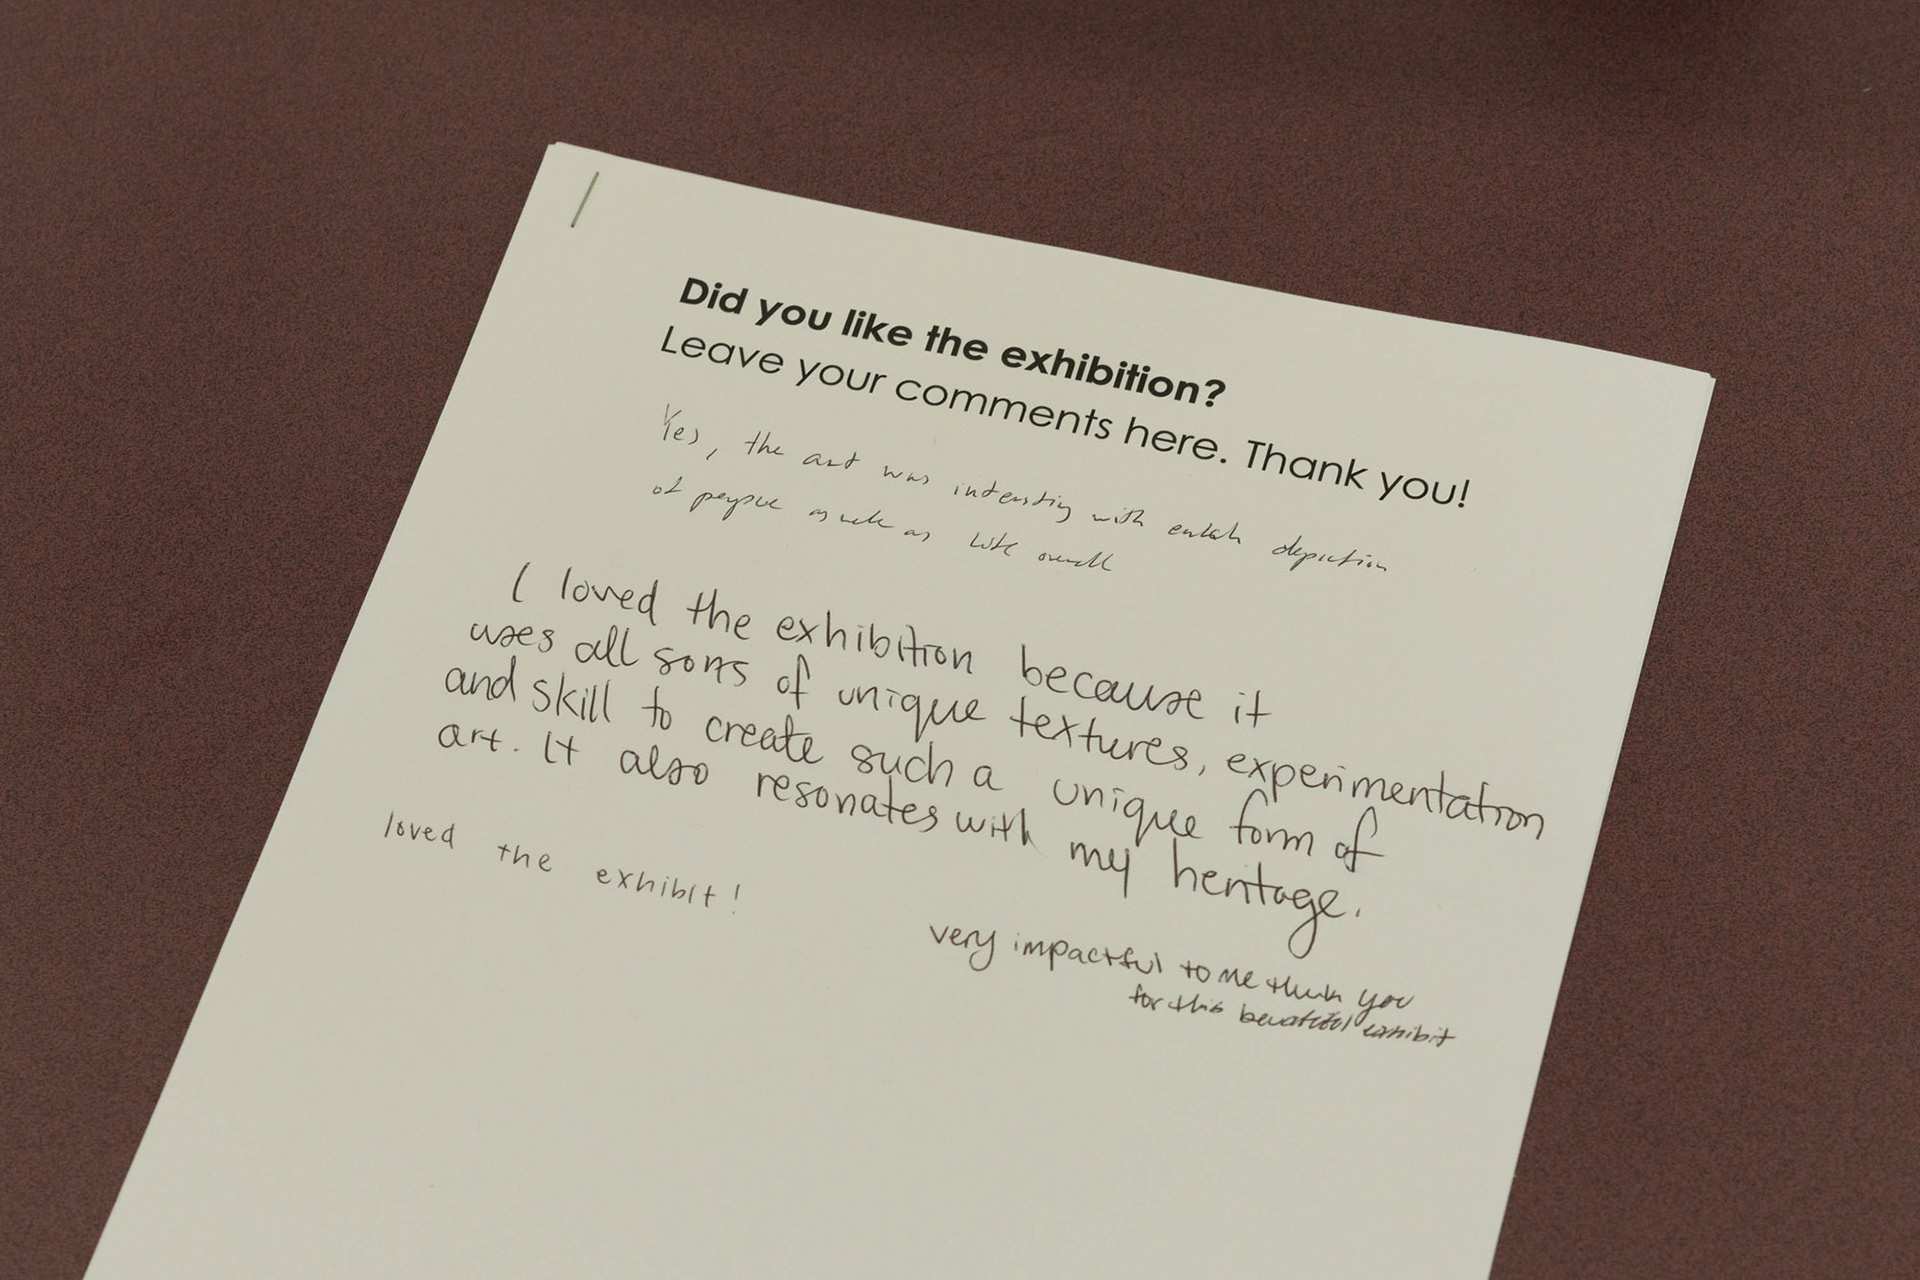 Did you like the exhibition?
Leave your comments here. Thank you!
Yes, the art was intersting with depiction
of as as life overall
I loved the exhibition because it
uses all sorts of unique textures, experimentation
and skill to create such a unique form of
art. It also resonates with my heritage.
loved the exhibit!
very impactful to me thank you
for this beautiful exhibit